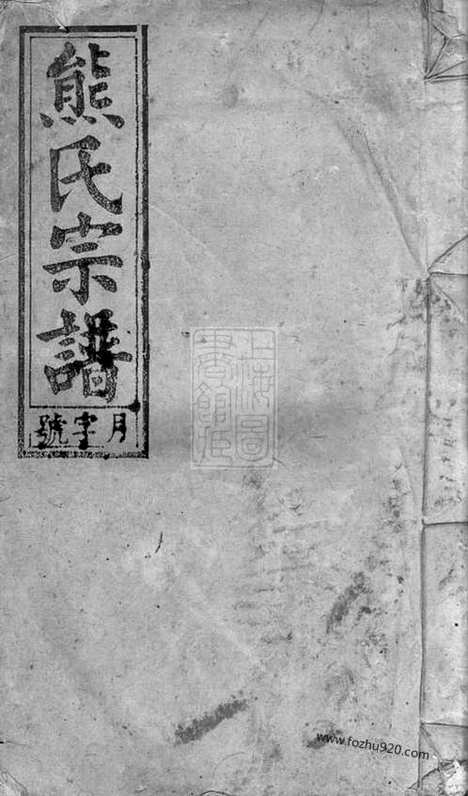 熊氏宗譜
月字號
上海圖書館藏
www.fozhu920.com